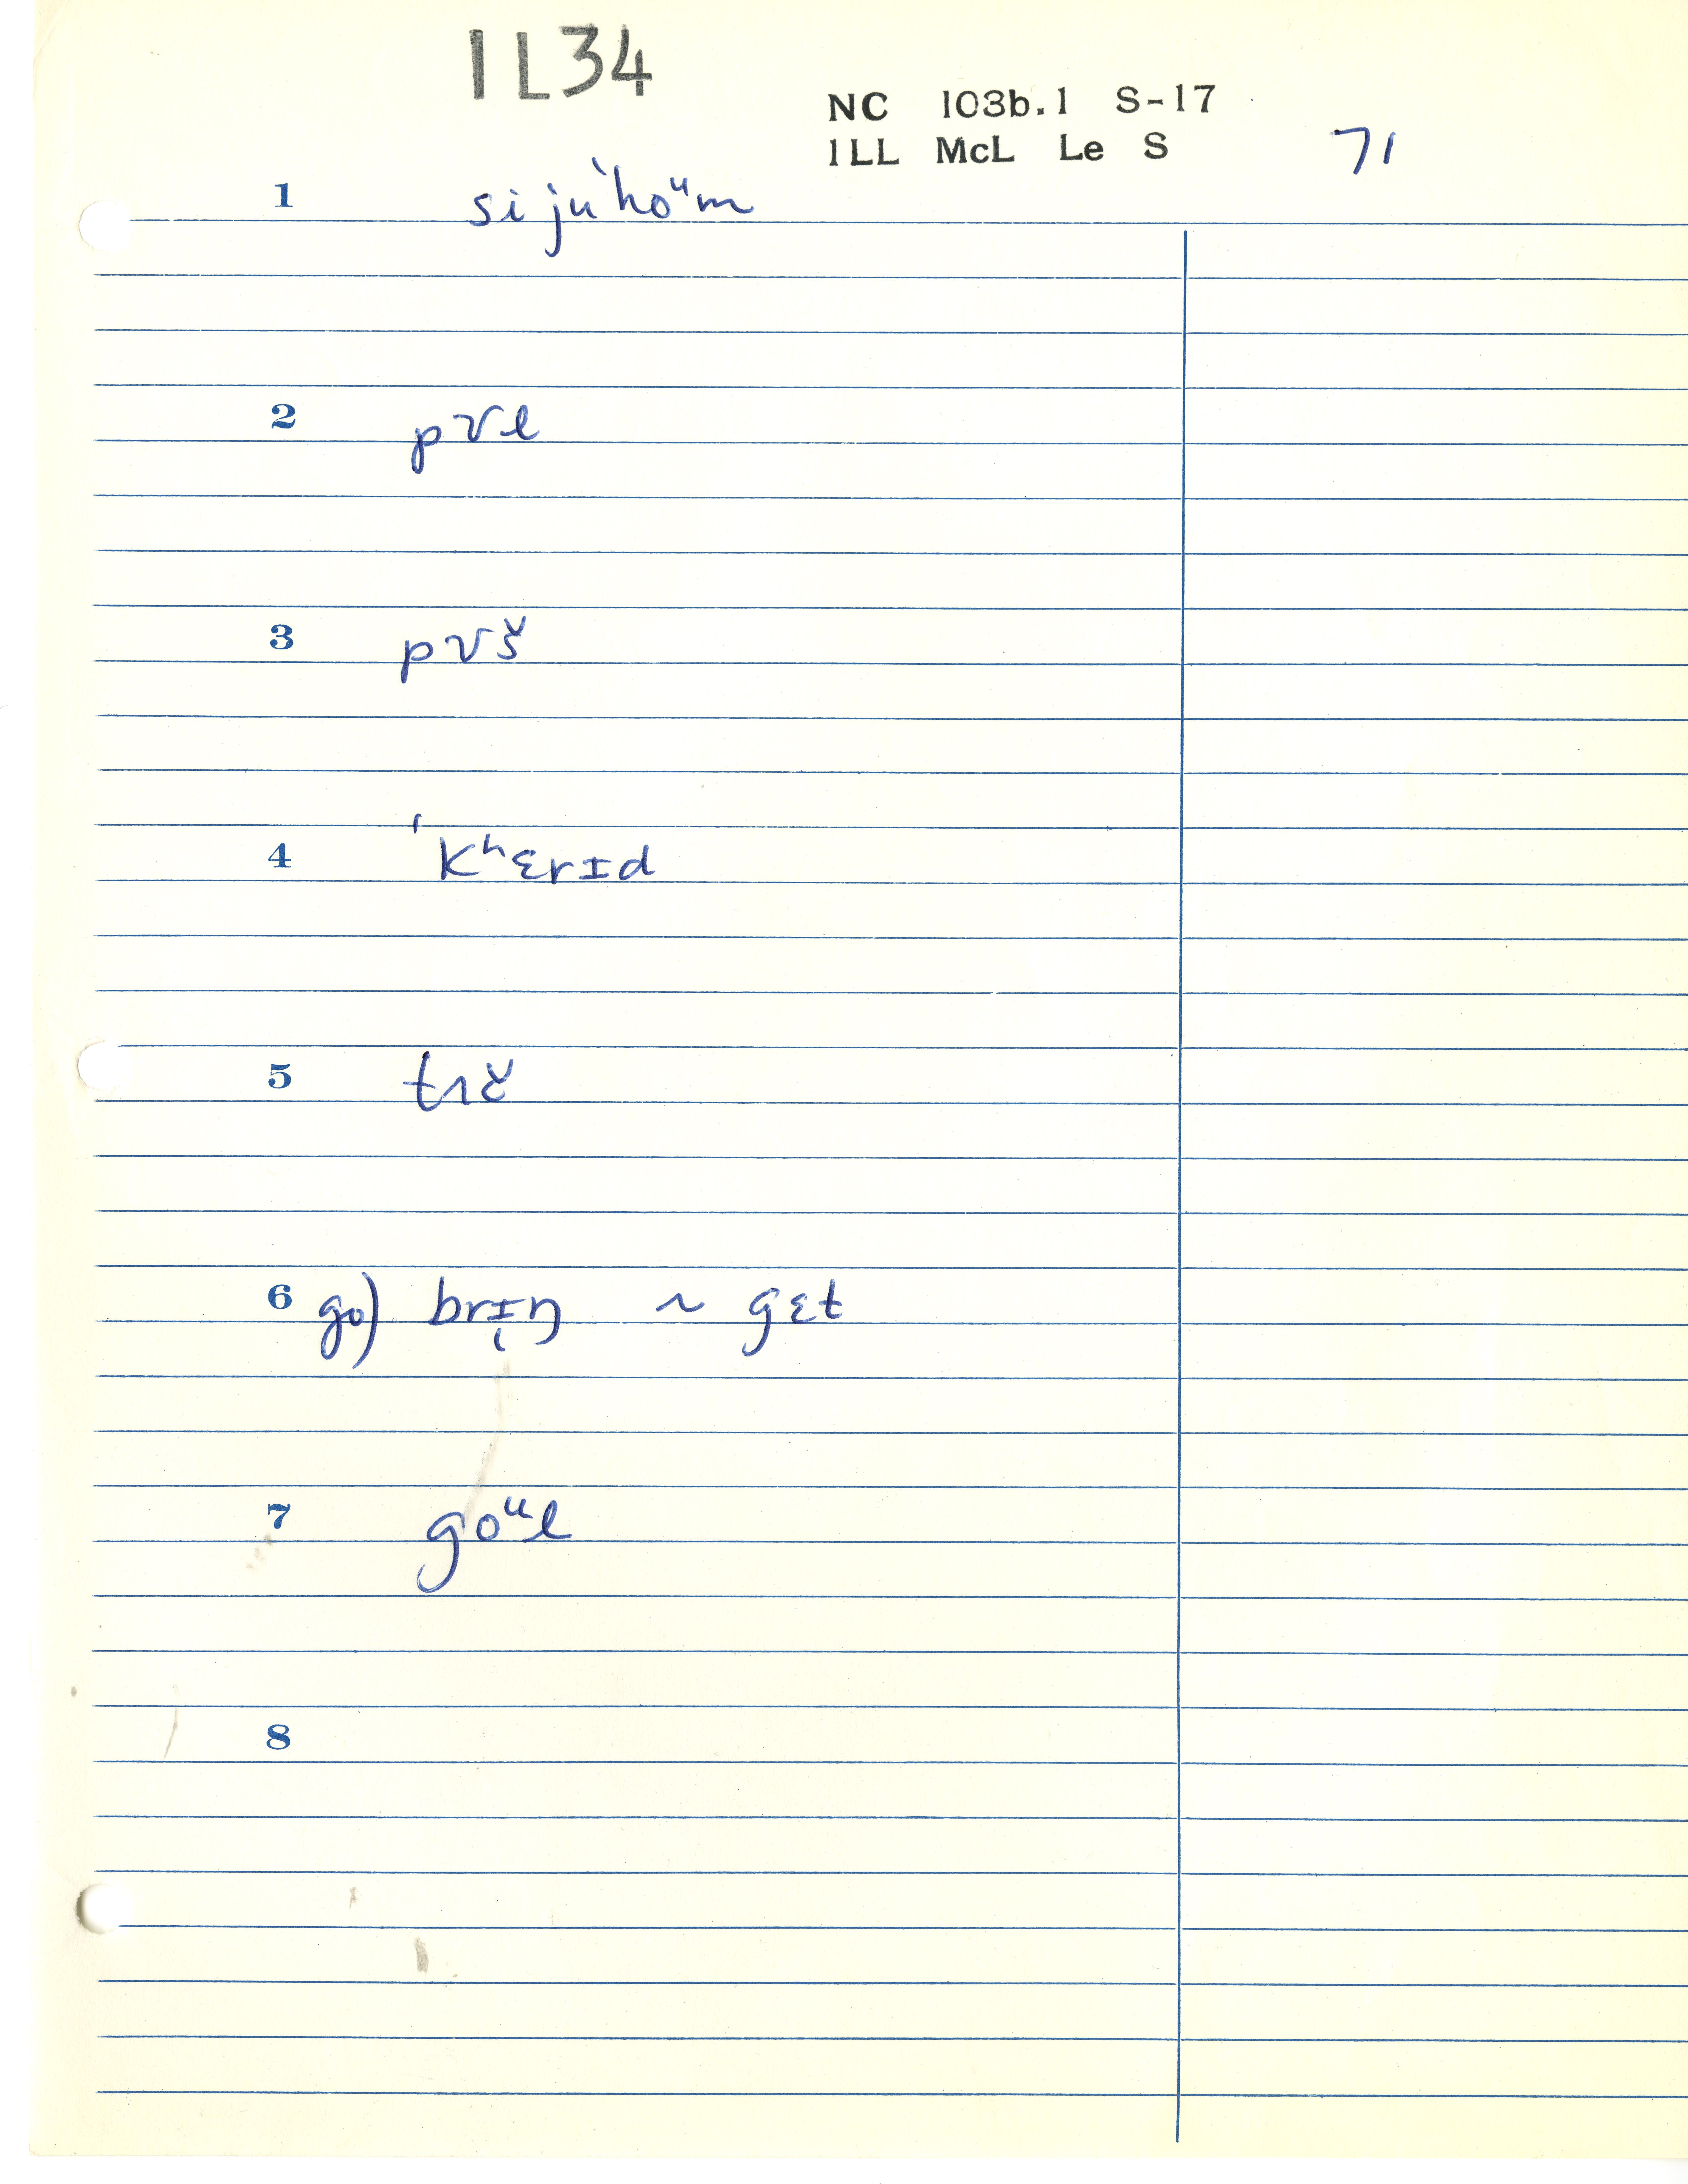 IL34
NC 103b.1 S-17
ILL McL Le S 71
1 siju'hoᵘm
2 pʊl
3 pʊš
4 'kʰɛrɪd
5 tɪč
6 go) brɪ̨ŋ ~ gɛt
7 goᵘl
8